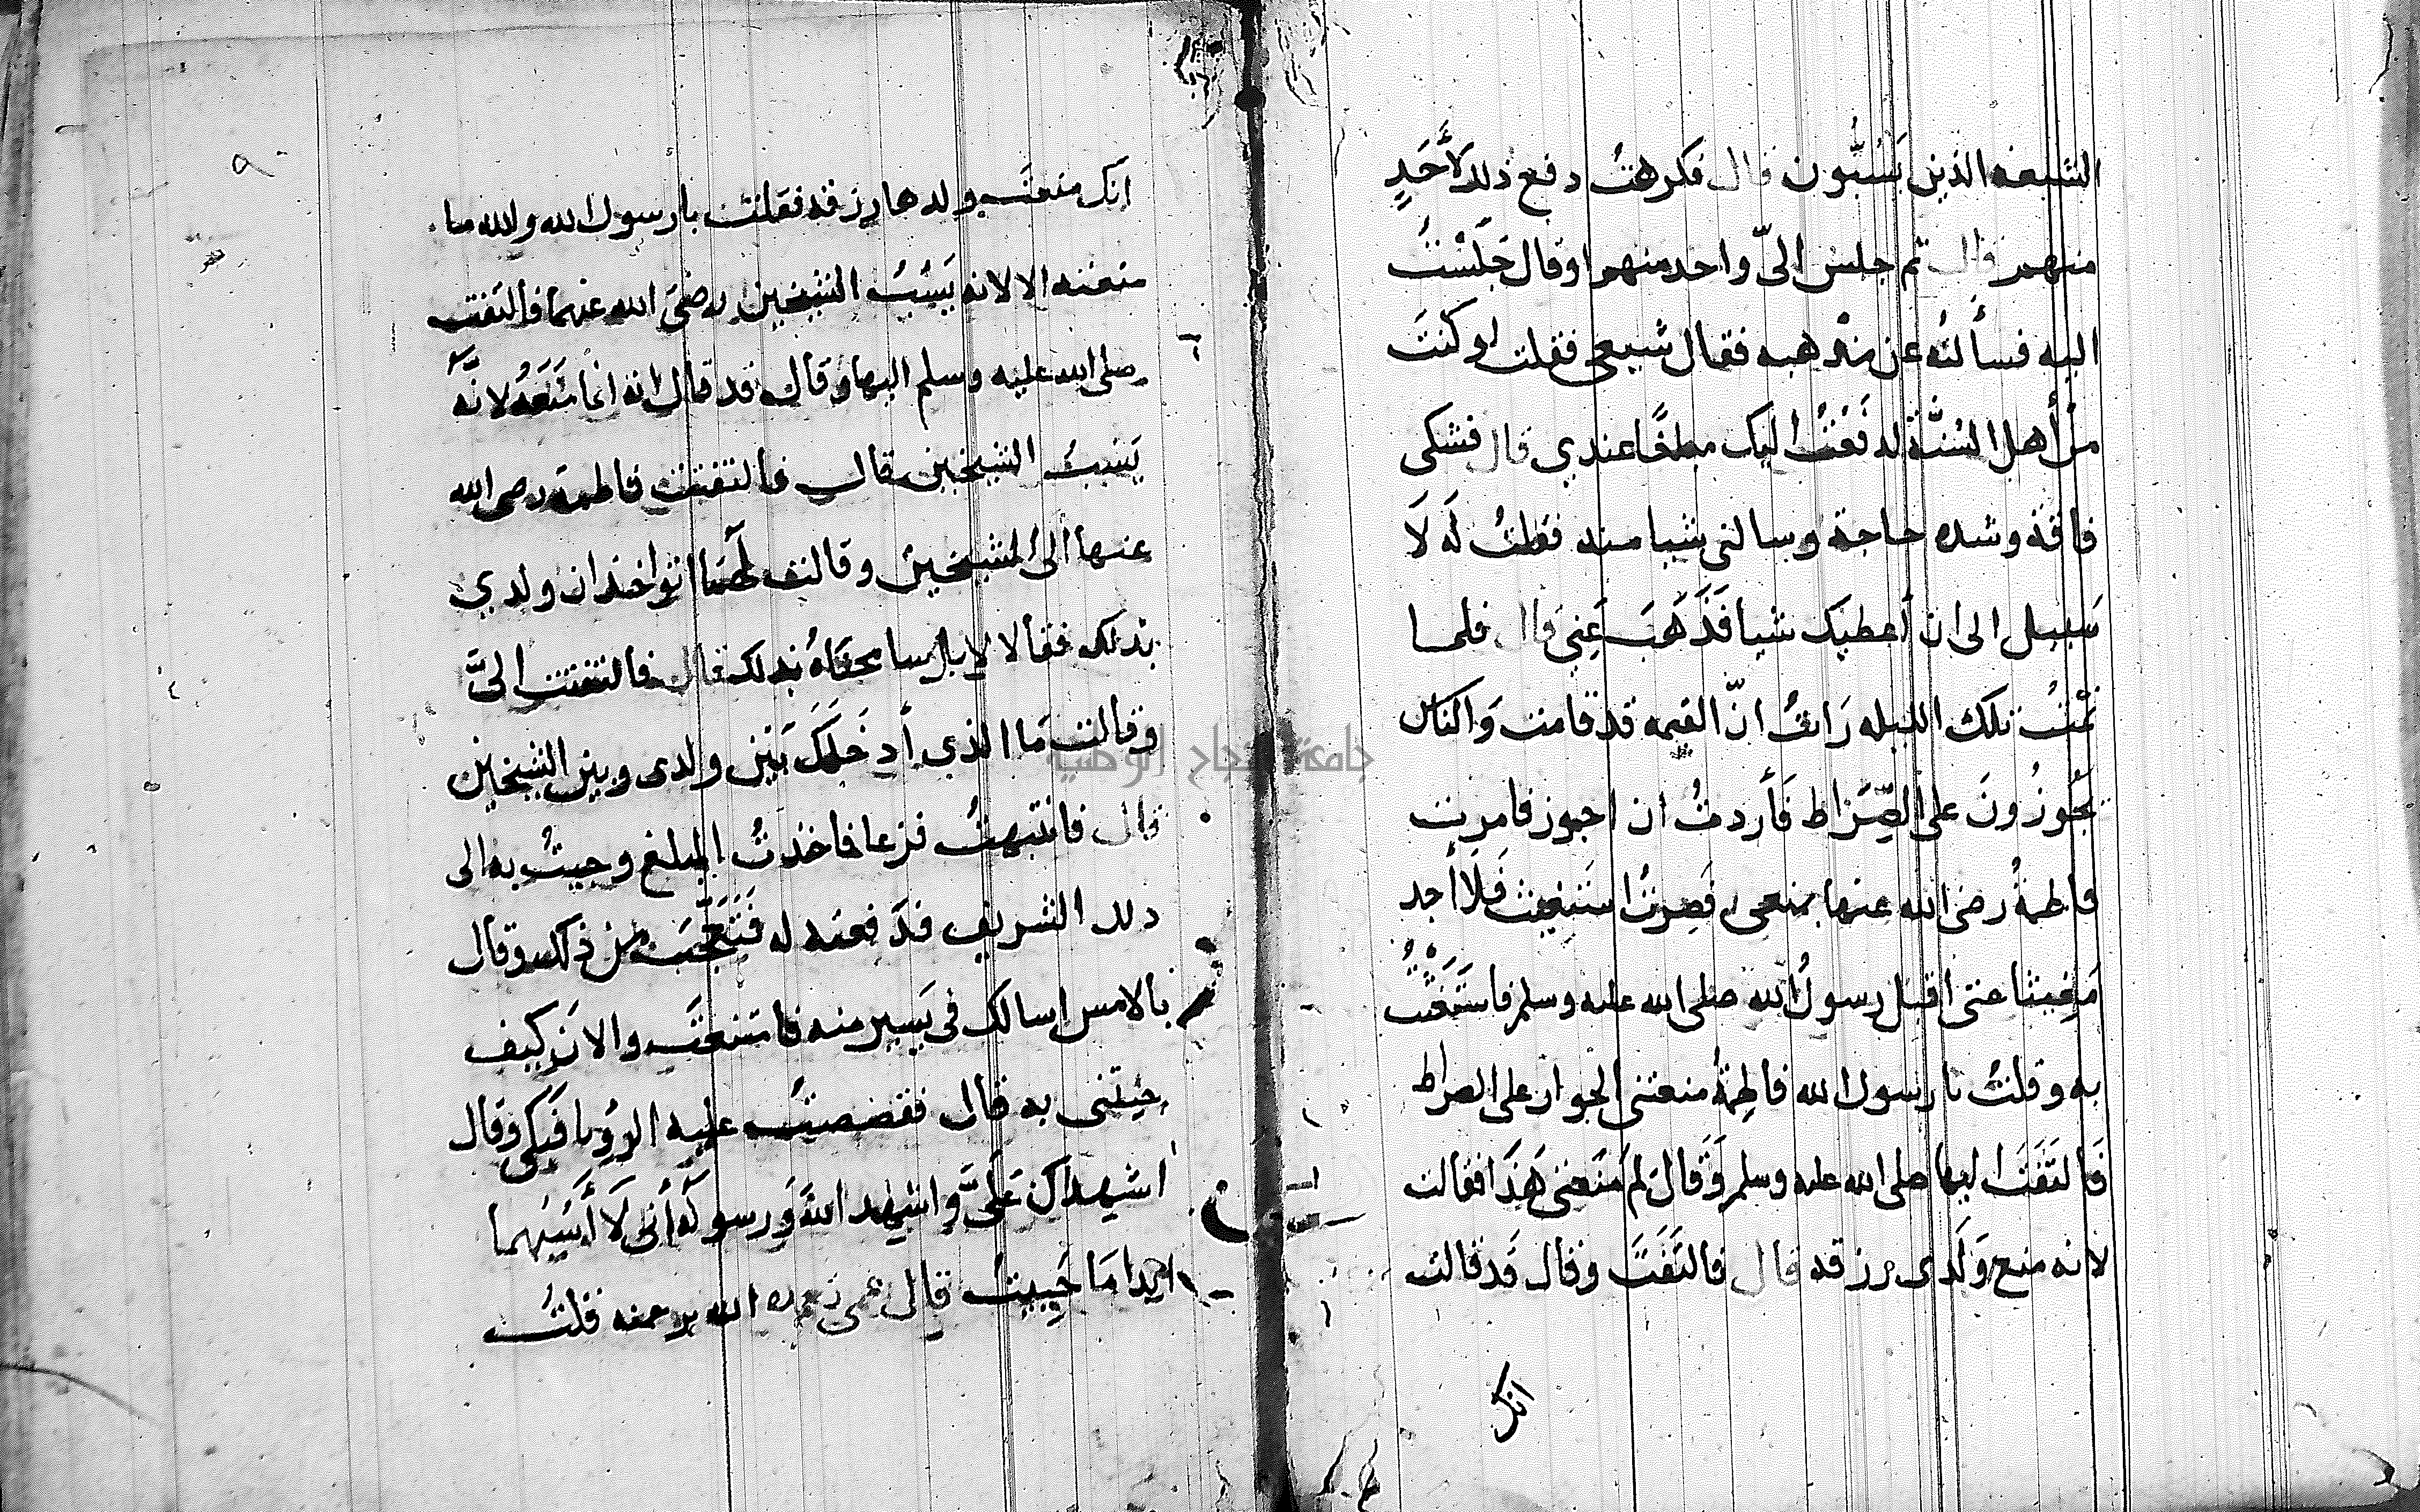 الشيعه الذين يَسُبُّون قال فكرهتُ دفع ذلك لأَحَدٍ
منهم قال ثم جلس اليّ واحد منهم او قال جَلَسْتُ
اليه فسألتُه عن مذهبه فقال شيعي فقلت لو كنتَ
من أهل السُنَّة لدفَعْتُ اليك مبلغًا عندي قال فشكى
فاقة وشده حاجة وسالني شيا منه فقلتُ لَه لَا
سَبيل الى ان أعطيَك شيا فَذَهَبَ عَنِي قال فلما
نمْتُ تلك الليله رَاتُ انّ القيمه قد قامت وَالناس
يَجُوزُونَ على الصِّرَاط فَأردتُ ان اجوز فامرت
فاطمةُ رضى الله عنها بمنعى فَصِرتُ استغيث فَلَا أجد
مُغِيثا حتى اقبل رسولُ الله صلى الله عليه وسلم فاستَغَثْتُ
به وقلتُ يا رسول الله فاطِمةُ منعتنى الجواز على الصراط
فَالتَفَتَ اليها صلى الله عليه وسلم وَقَالَ لم مَنَعتى هَذَا فقالت
لانه منع وَلَدى رزقه قال فالتَفَتَ وقال قَد قالت
انك
انك منعتَ ولدها رزقه فقلت يا رسول الله والله ما
منعته الا لانه يَسُبُّ الشيخين رضىَ الله عنهما فالتَفتَ
صلى الله عليه وسلم اليها وقال قد قال انه انما مَنَعَهُ لانَّهُ
يَسُبُّ الشيخين قال فالتفتت فاطمة رضى الله
عنها الى الشيخين وقالت لَهُمَا اتواخذان ولدي
بذلك فقالا لا بل سامحنَاهُ بذلك قال فالتفتت اليَّ
وقالت مَا الذي أدخَلَكَ بَيْن ولدى وبين الشيخين
قال فانتبهتُ فزعا فاخذتُ المبلغ وجيتُ به الى
ذلك الشريف فدَفعته له فَتَعَجَّبَ من ذلك وقال
بالامس اسالك فى يَسير منه فامتنعتَ والانَ كيف
جيتنى به قال فقصصتُ عليه الرؤيا فَبَكى وقال
اشهدك عَلَيَّ واشهد اللهَ وَرسولَهُ أَنى لَا أسُبُهما
ابدا مَا حَيِيتُ قال عمى تغمده الله برحمته قلتُ